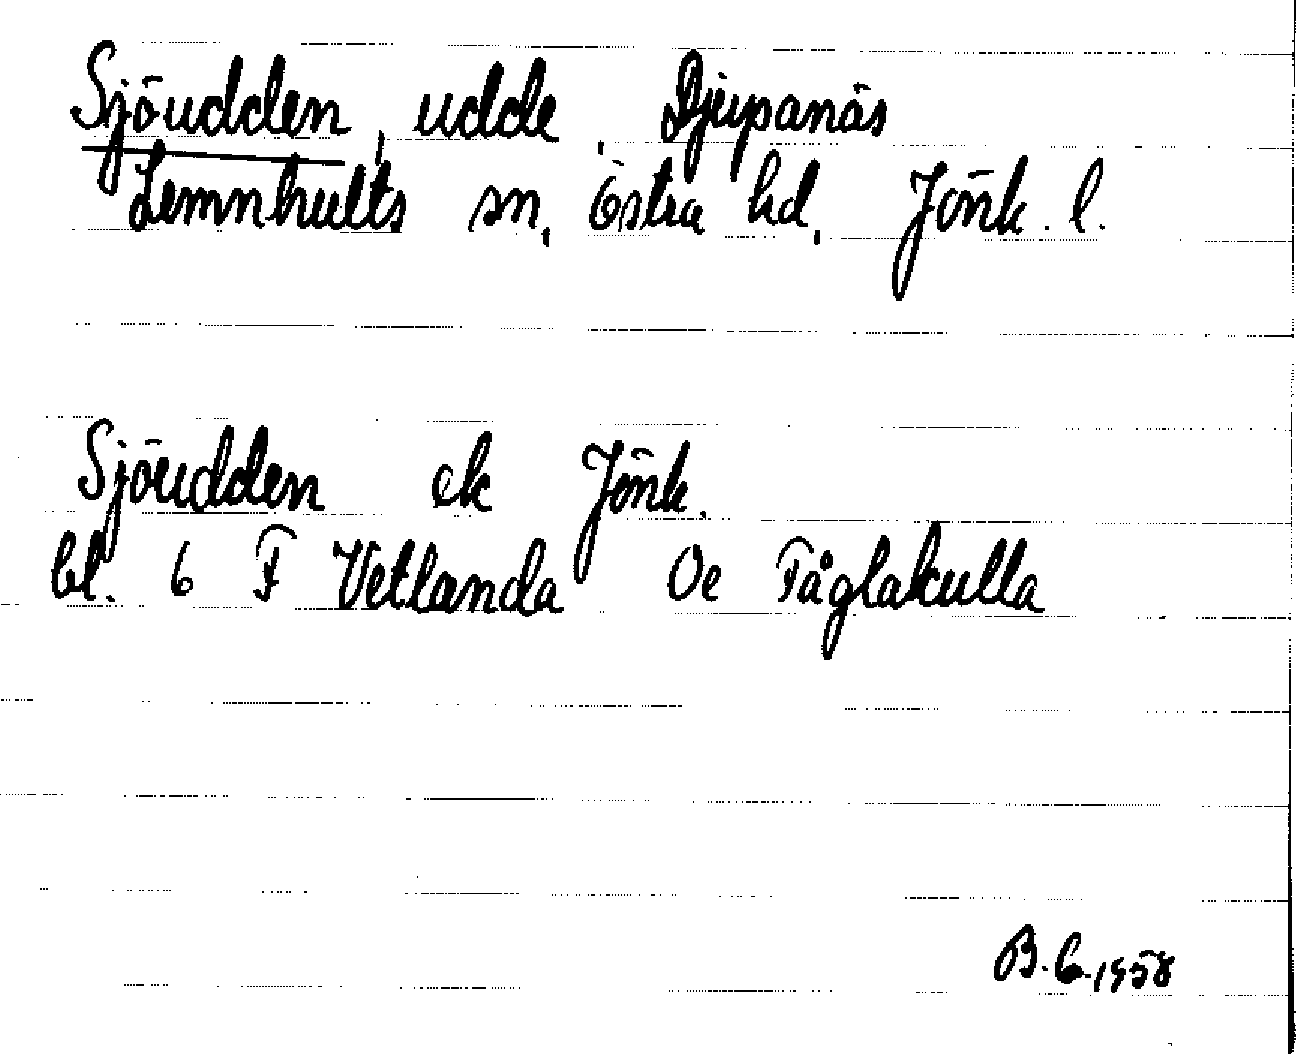 Sjöudden, udde, Djupanäs
Lemnhults sn, Östra hd, Jönk. l.
Sjöudden ek Jönk.
bl. 6 F Vetlanda Oe Fåglakulla
B.C. 1958